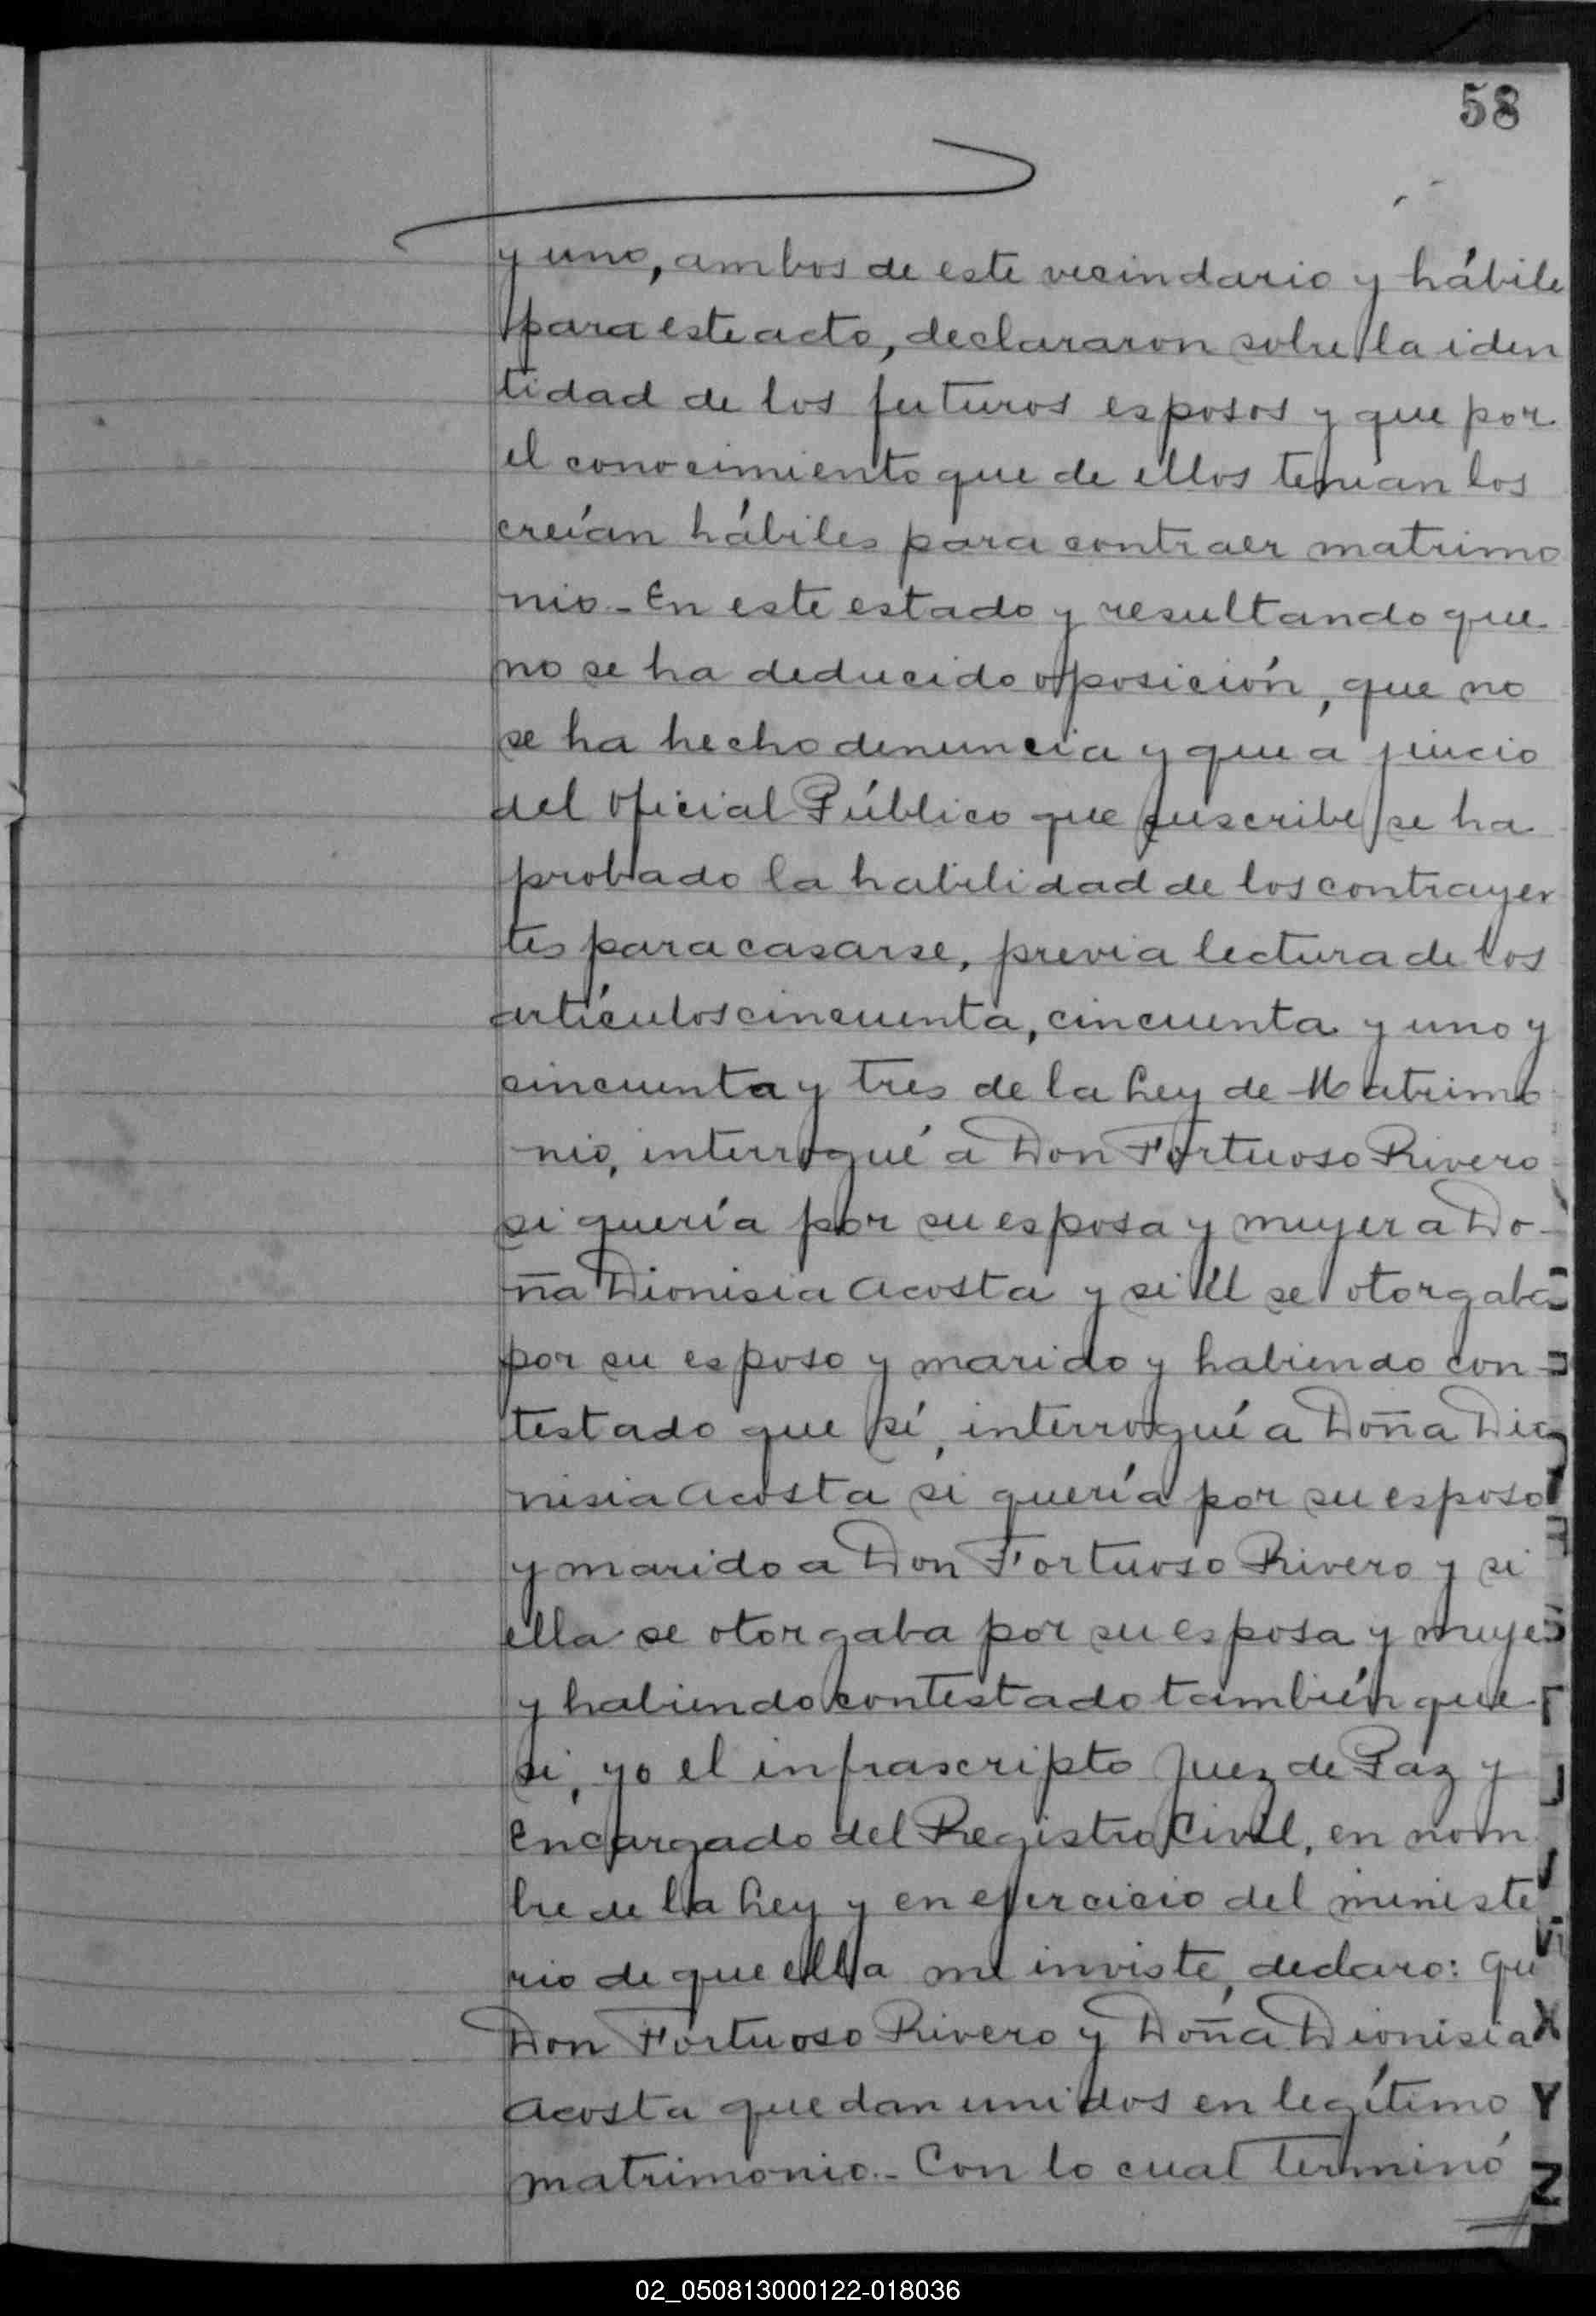 58
y uno, ambos de este vecindario y hábile
para este acto, declararon sobre la iden
tidad de los futuros esposos y que por
el conocimiento que de ellos tenían los
creían hábiles para contraer matrimo
nio.- En este estado y resultando que
no se ha deducido oposición, que no
se ha hecho denuncia y que a juicio
del Oficial Público que suscribe se ha
probado la habilidad de los contrayen
tes para casarse, previa lectura de los
artículos cincuenta, cincuenta y uno y
cincuenta y tres de la Ley de Matrimo
nio, interrogué a Don Fortuoso Rivero
si quería por su esposa y mujer a Do-
ña Dionisia Acosta y si él se otorgaba
por su esposo y marido y habiendo con-
testado que sí, interrogué a Doña Dio
nisia Acosta si quería por su esposo
y marido a Don Fortuoso Rivero y si
ella se otorgaba por su esposa y muje
y habiendo contestado también que
si, yo el infrascripto Juez de Paz y
Encargado del Registro Civil, en nom
bre de la Ley y en ejercicio del ministe
rio de que ella me inviste, declaro: Qu
Don Fortuoso Rivero y Doña Dionisia
X
Acosta quedan unidos en legítimo
Y
matrimonio.- Con lo cual terminó
Z
02_050813000122-018036